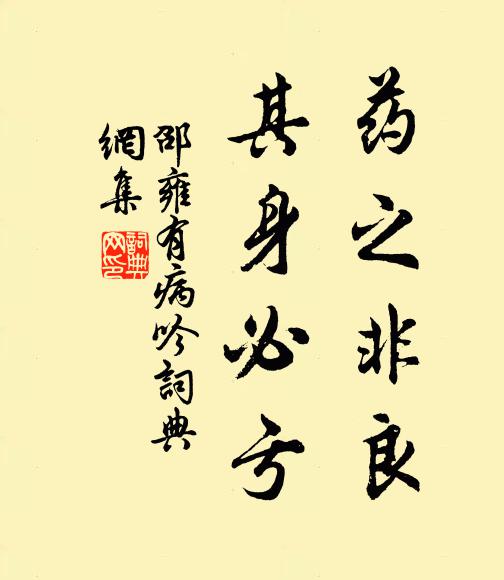 药之非良
其身必亏
邵雍有病吟词典
網集
詞典网印